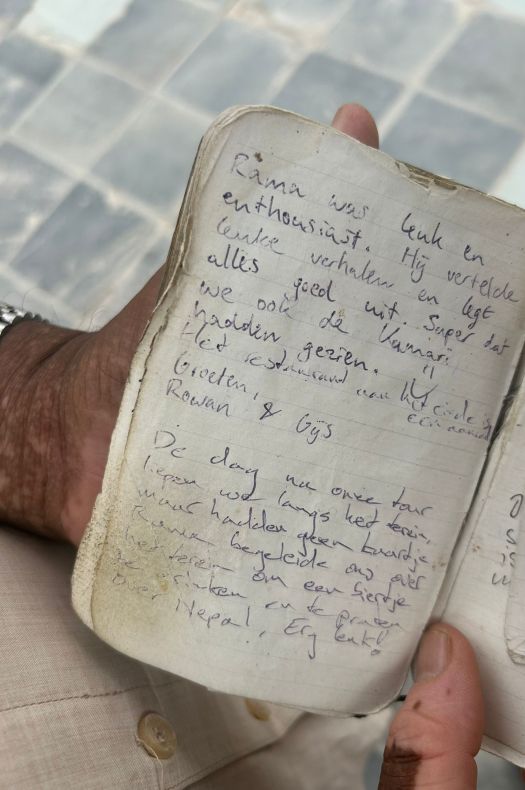 Rama was leuk en
enthousiast. Hij vertelde
leuke verhalen en legt
alles goed uit. Super dat
we ook de Kumari
hadden gezien.
Het restaurand aan het einde is
een aanrader
Groeten,
Rowan & Gijs
De dag na onze tour
liepen we langs het terein,
maar hadden geen kaartje.
Rama begeleide ons over
het terein om een biertje
te drinken en te praten
over Nepal. Erg leuk!